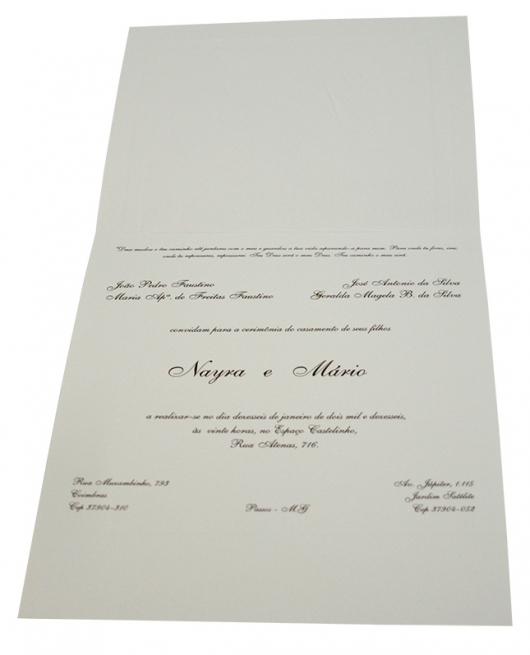 "Deus mudou o teu caminho até juntares com o meu e guardou a tua vida separando-a para mim. Para onde tu fores, irei;
onde tu repousares, repousarei. Teu Deus será o meu Deus. Teu caminho o meu será.
João Pedro Faustino
Maria Apª. de Freitas Faustino
José Antonio da Silva
Geralda Magela B. da Silva
convidam para a cerimônia do casamento de seus filhos
Nayra e Mário
a realizar-se no dia dezesseis de janeiro de dois mil e dezesseis,
às vinte horas, no Espaço Castelinho,
Rua Atenas, 716.
Rua Muzambinho, 793
Coimbras
Cep 37904-310
Passos - MG
Av. Júpiter, 1.115
Jardim Satélite
Cep 37904-052